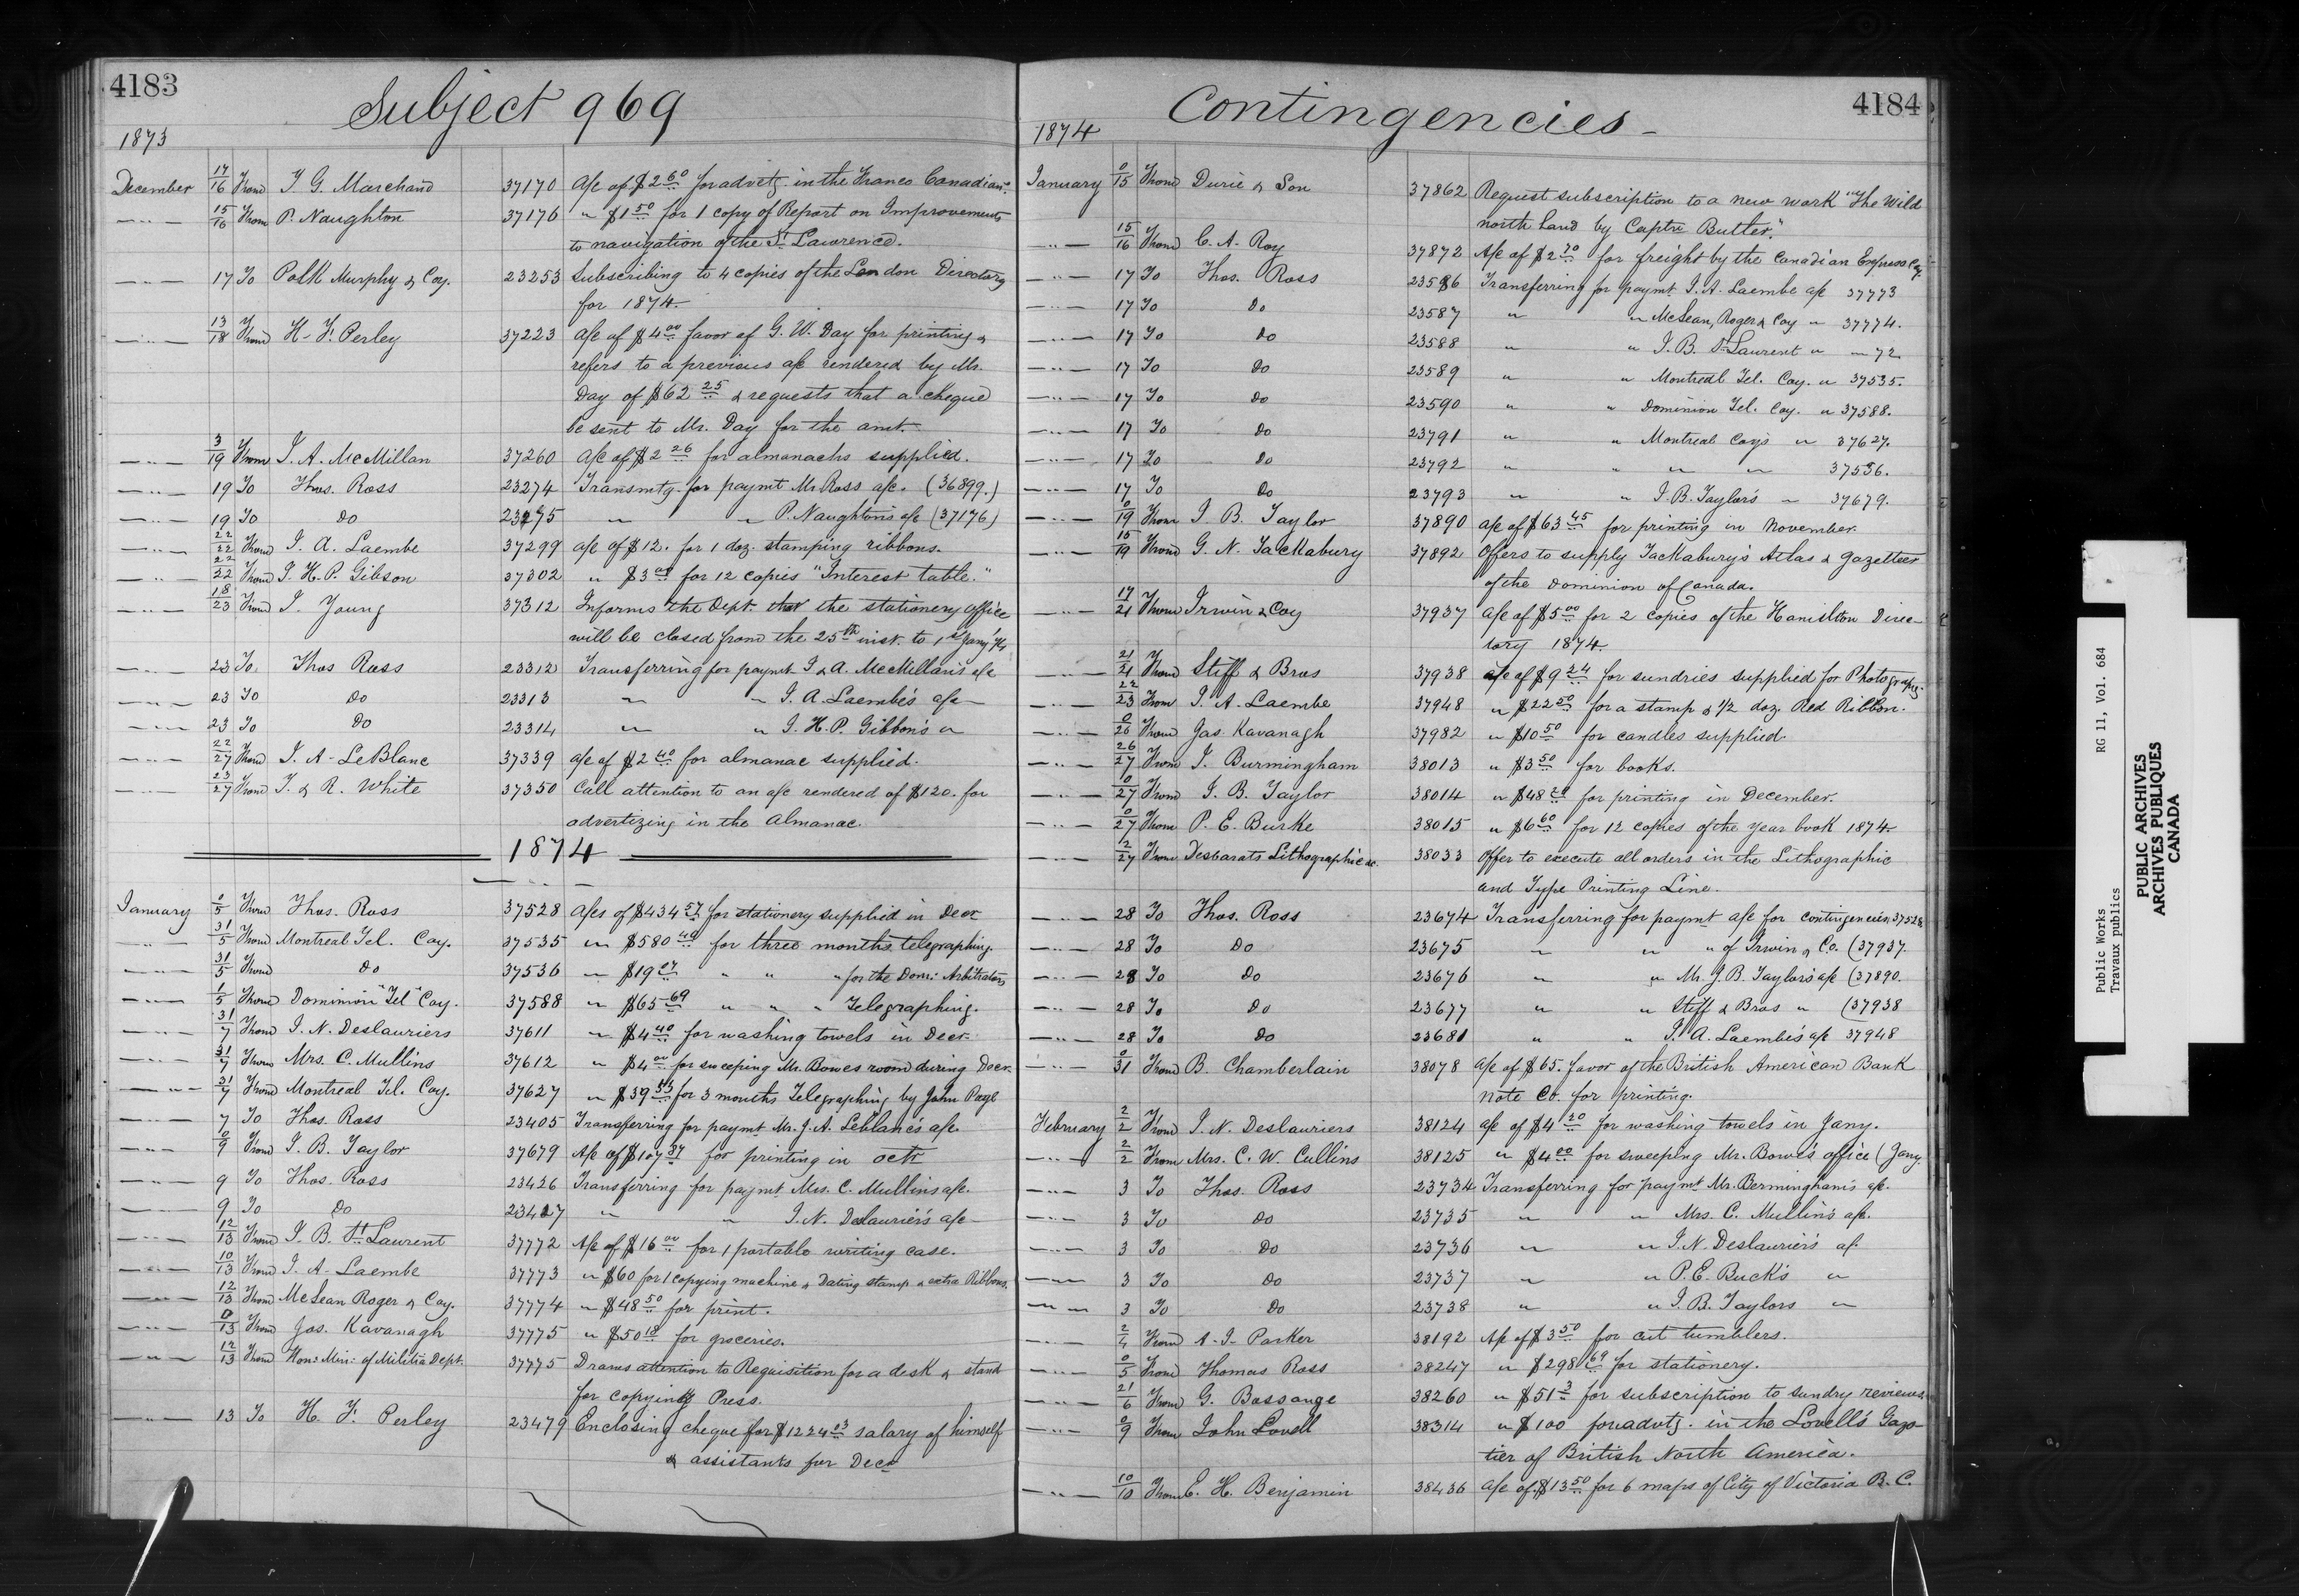 4183
Subject 969
1873
December 17/16 From F. G. Marchand 37170 a/c of $2 60 for advtg in the Franco Canadian.
—"— 15/16 From P. Naughton 37176 " $1 50 for 1 copy of Report on Improvements
to navigation of the St Lawrence.
—"— 17 To Polk Murphy & Coy. 23253 Subscribing to 4 copies of the London Directory
for 1874.
—"— 13/18 From H. F. Perley 37223 a/c of $4 00 favor of G. W. Day for printing &
refers to a previous a/c rendered by Mr.
Day of $62 25 & requests that a cheque
be sent to Mr. Day for the amt.
—"— 3/19 From J. A. McMillan 37260 a/c of $2 26 for almanachs supplied.
—"— 19 To Thos. Ross 23274 Transmtg for paymt Mr Ross a/c. (36899.)
—"— 19 To Do 23275 " " P. Naughton's a/c (37176)
—"— 22/22 From J. A. Laembe 37299 a/c of $12. for 1 doz. stamping ribbons.
—"— 22/22 From J. H. P. Gibson 37302 " $3 00 for 12 copies "Interest table."
—"— 18/23 From J. Young 37312 Informs the Dept. that the stationery office
will be closed from the 25th inst. to 1st Jany 74
—"— 23 To Thos Ross 23312 Transferring for paymt J & A. McMillan's a/c
—"— 23 To Do 23313 " " J. A. Laembe's a/c
—"— 23 To Do 23314 " " J. H. P. Gibbon's "
—"— 22/27 From J. A. LeBlanc 37339 a/c of $2 40 for almanac supplied.
—"— 23/27 From J. & R. White 37350 Call attention to an a/c rendered of $120. for
advertizing in the Almanac.
1874
January 0/5 From Thos. Ross 37528 a/cs of $434 57 for stationery supplied in Decr
—"— 31/5 From Montreal Tel. Coy. 37535 " $580 40 for three months telegraphing.
—"— 31/5 From Do 37536 " $19 " " " for the Dom: Arbitrators
—"— 1/5 From Dominion "Tel" Coy. 37588 " $65 69 " " " Telegraphing.
—"— 31/7 From J. N. Deslauriers 37611 " $4 40 for washing towels in Decr
—"— 31/7 From Mrs. C. Mullins 37612 " $4 00 for sweeping Mr. Bowes room during Decr
—"— 31/7 From Montreal Tel. Coy. 37627 " $39 53 for 3 months Telegraphing by John Page
—"— 7 To Thos. Ross 23405 Transferring for paymt Mr. J. A. Leblanc's a/c.
—"— 0/9 From J. B. Taylor 37679 A/c of $107 37 for printing in Octr
—"— 9 To Thos. Ross 23426 Transferring for paymt Mrs. C. Mullins a/c.
—"— 9 To Do 23427 " " J. N. Deslaurier's a/c
—"— 12/13 From J. B. St Laurent 37772 A/c of $16 00 for 1 portable writing case.
—"— 10/13 From J. A. Laembe 37773 " $60 for 1 copying machine & Dating stamp & extra Ribbons.
—"— 12/13 From McLean Roger & Coy. 37774 " $48 50 for print.
—"— 0/13 From Jas. Kavanagh 37775 " $50 18 for groceries.
—"— 12/13 From Hon: Min: of Militia Dept. 37775 Draws attention to Requisition for a desk & stand
for copying Press.
—"— 13 To H. F. Perley 23479 Enclosing cheque for $1224 03 salary of himself
& assistants for Decr
4184
Contingencies
1874
January 0/15 From Durie & Son 37862 Request subscription to a new work "The Wild
north land by Captn Butler."
—"— 15/16 From C. A. Roy 37872 A/c of $2 70 for freight by the Canadian Express Coy.
—"— 17 To Thos. Ross 23586 Transferring for paymt J. A. Laembe a/c 37773
—"— 17 To Do 23587 " " McLean, Roger & Coy " 37774.
—"— 17 To Do 23588 " " J. B. St Laurent " " 72.
—"— 17 To Do 23589 " " Montreal Tel. Coy. " 37535.
—"— 17 To Do 23590 " " Dominion Tel. Coy. " 37588.
—"— 17 To Do 23791 " " Montreal Coy's " 37627.
—"— 17 To Do 23792 " " " " 37536.
—"— 17 To Do 23793 " " J. B. Taylor's " 37679.
—"— 0/19 From J. B. Taylor 37890 a/c of $63 45 for printing in November.
—"— 15/19 From G. N. Tackabury 37892 Offers to supply Tackabury's Atlas & Gazetteer
of the Dominion of Canada.
—"— 17/21 From Irwin & Coy 37937 a/c of $5 00 for 2 copies of the Hamilton Direc-
tory 1874.
—"— 21/21 From Stiff & Bros 37938 a/c of $9 24 for sundries supplied for Photography.
—"— 22/23 From J. A. Laembe 37948 " $22 50 for a stamp & 1/2 doz. Red Ribbon.
—"— 0/26 From Jas. Kavanagh 37982 " $10 50 for candles supplied
—"— 26/27 From J. Burmingham 38013 " $3 50 for books.
—"— 0/27 From J. B. Taylor 38014 " $48 for printing in December.
—"— 0/27 From P. E. Burke 38015 " $6 60 for 12 copies of the year book 1874
—"— 2/27 From Desbarats Lithographic &c. 38033 Offer to execute all orders in the Lithographic
and Type Printing Line.
—"— 28 To Thos. Ross 23674 Transferring for paymt a/c for contingencies 37528
—"— 28 To Do 23675 " " " of Irwin & Co. (37937.
—"— 28 To Do 23676 " " Mr. J. B. Taylor's a/c (37890.
—"— 28 To Do 23677 " " Stiff & Bros " (37938
—"— 28 To Do 23681 " " J. A. Laembe's a/c 37948
—"— 0/31 From B. Chamberlain 38078 a/c of $65. favor of the British American Bank
note Co. for printing.
February 2/2 From J. N. Deslauriers 38124 a/c of $4 20 for washing towels in Jany.
—"— 2/2 From Mrs. C. W. Cullins 38125 " $4 00 for sweeping Mr. Bowe's office (Jany.
—"— 3 To Thos. Ross 23734 Transferring for paymt Mr. Bermingham's a/c.
—"— 3 To Do 23735 " " Mrs. C. Mullin's a/c.
—"— 3 To Do 23736 " " J. N. Deslaurier's a/c.
—"— 3 To Do 23737 " " P. E. Buck's "
—"— 3 To Do 23738 " " J. B. Taylors "
—"— 2/4 From A. J. Parker 38192 A/c of $3 50 for cut tumblers.
—"— 0/5 From Thomas Ross 38247 " $298 69 for stationery.
—"— 21/6 From G. Bossange 38260 " $51 3 for subscription to sundry reviews.
—"— 0/9 From John Lovell 38314 " $100 for advtg. in the Lovell's Gazet-
tier of British North America.
—"— 10/10 From E. H. Benjamin 38436 a/c of $13 50 for 6 maps of City of Victoria B. C.
Public Works RG 11, Vol. 684
Travaux publics
PUBLIC ARCHIVES
ARCHIVES PUBLIQUES
CANADA